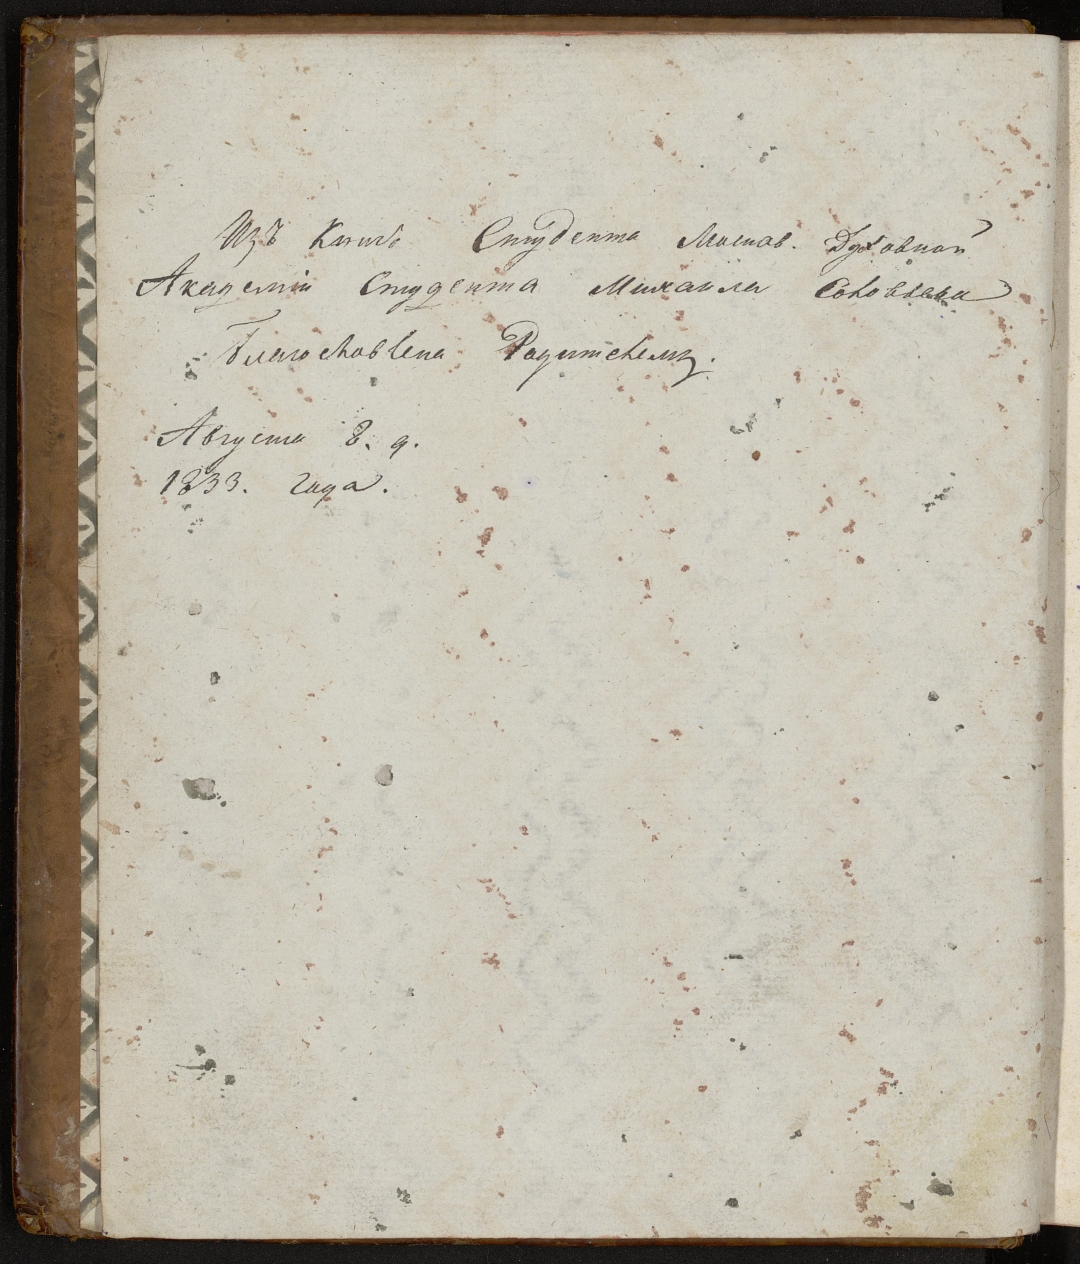 Изъ Книгъ Студента Москов. Духовной
Академіи Студента Михаила Соловьева
Благословена Родителемъ.
Августа 8. д.
1833. года.